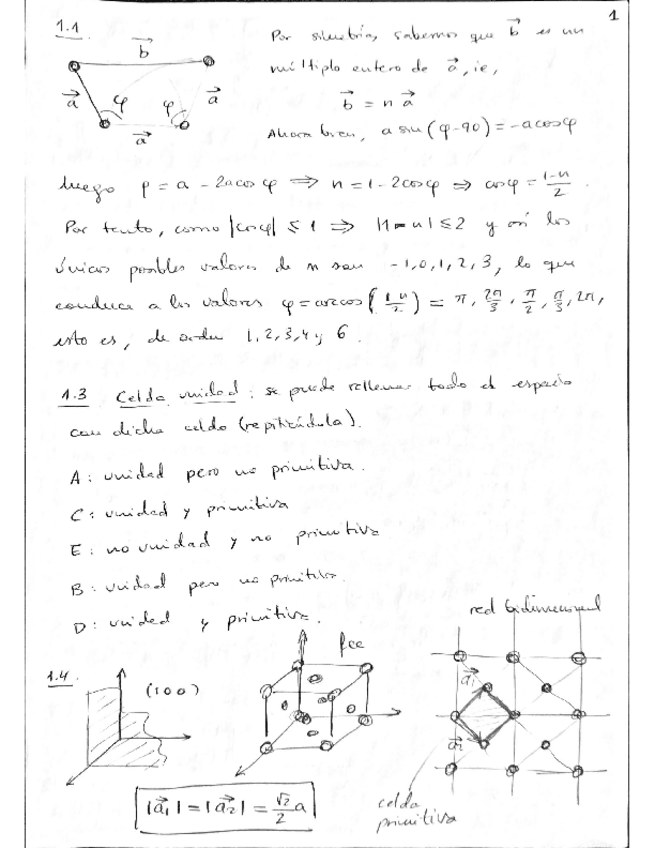 1
1.1
b⃗
a⃗ φ φ a⃗
a⃗
Por simetría, sabemos que b⃗ es un
múltiplo entero de a⃗, ie,
b⃗ = n a⃗
Ahora bien, a sin(φ-90) = -a cosφ
luego p = a - 2a cosφ ⇒ n = 1 - 2cosφ ⇒ cosφ = (1-n)/2.
Por tanto, como |cosφ| ≤ 1 ⇒ |1-n| ≤ 2 y así los
únicos posibles valores de n son -1,0,1,2,3, lo que
conduce a los valores φ = arccos((1-n)/2) = π, 2π/3, π/2, π/3, 2π,
esto es, de orden 1,2,3,4 y 6.
1.3 Celda unidad: se puede rellenar todo el espacio
con dicha celda (repitiéndola).
A: unidad pero no primitiva.
C: unidad y primitiva
E: no unidad y no primitiva
B: unidad pero no primitiva.
D: unidad y primitiva.
1.4.
(100)
fcc
red bidimensional
a⃗₁
a⃗₂
|a⃗₁| = |a⃗₂| = √2/2 a
celda
primitiva